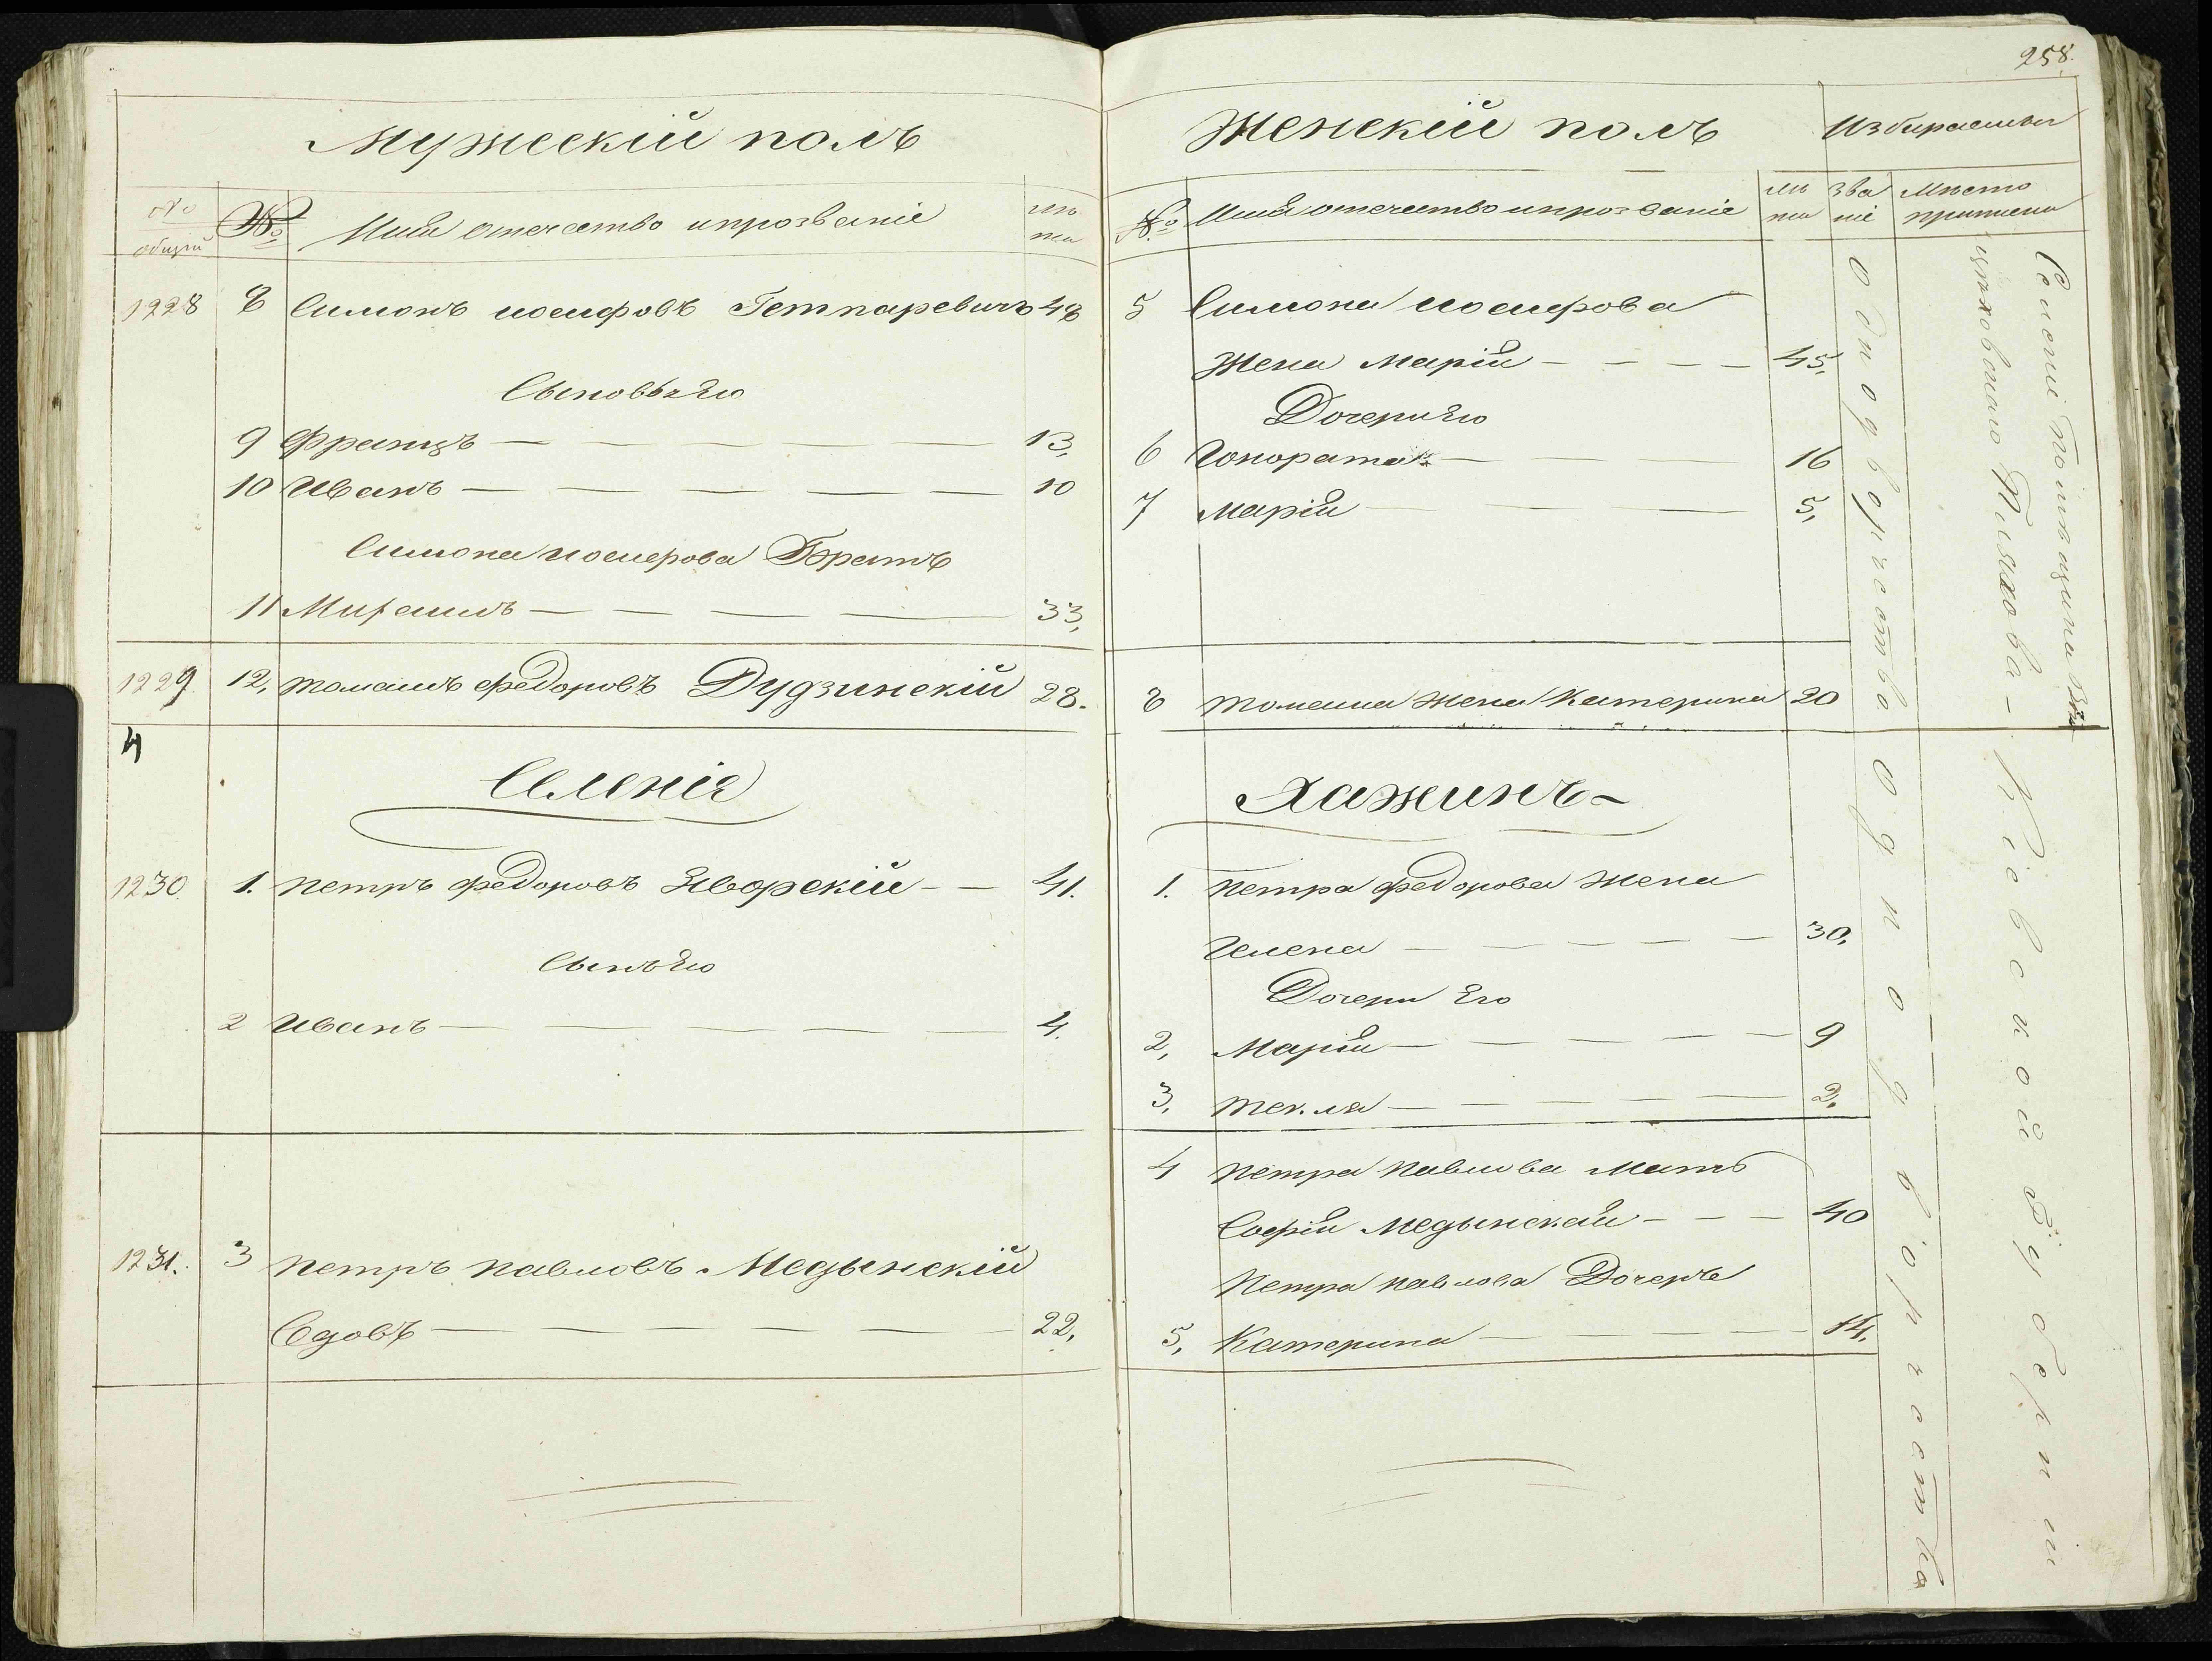 258.
Мужескій полъ
№ общій
№
Имя отечество и прозваніе
лѣта
1228 8 Симонъ иосифовъ Гетпаревичъ 48
Сыновья Его
9 Францъ 13,
10 Иванъ 10
Симона иосифова Братъ
11 33,
1229 12, томашъ федоровъ Дудзинскій 28.
4
Селенія
1230 1. петръ федоровъ Яворскій 41.
Сынъ Его
2 Иванъ 4.
1231. 3 петръ павловъ Медынскій
Вдовъ 22,
Женскій полъ
Избираемыя
№
Имя отечество и прозваніе
лѣта
званіе
Мѣсто приписки
5 Симона иосифова
Жена Марія 45,
Дочери Его
6 Гонората 16
7 Марія 5,
8 томаша жена Катерина 20
Хажинъ
1. петра федорова жена
Гелена 30,
Дочери Его
2, Марія 9
3, текля 2.
4 петра павлова Мать
Софія Медынская 40
петра павлова Дочерь
5, Катерина 14,
однодворчество
Селеніе помѣщика
Пляхова
однодворчества
Кіевской Губерніи